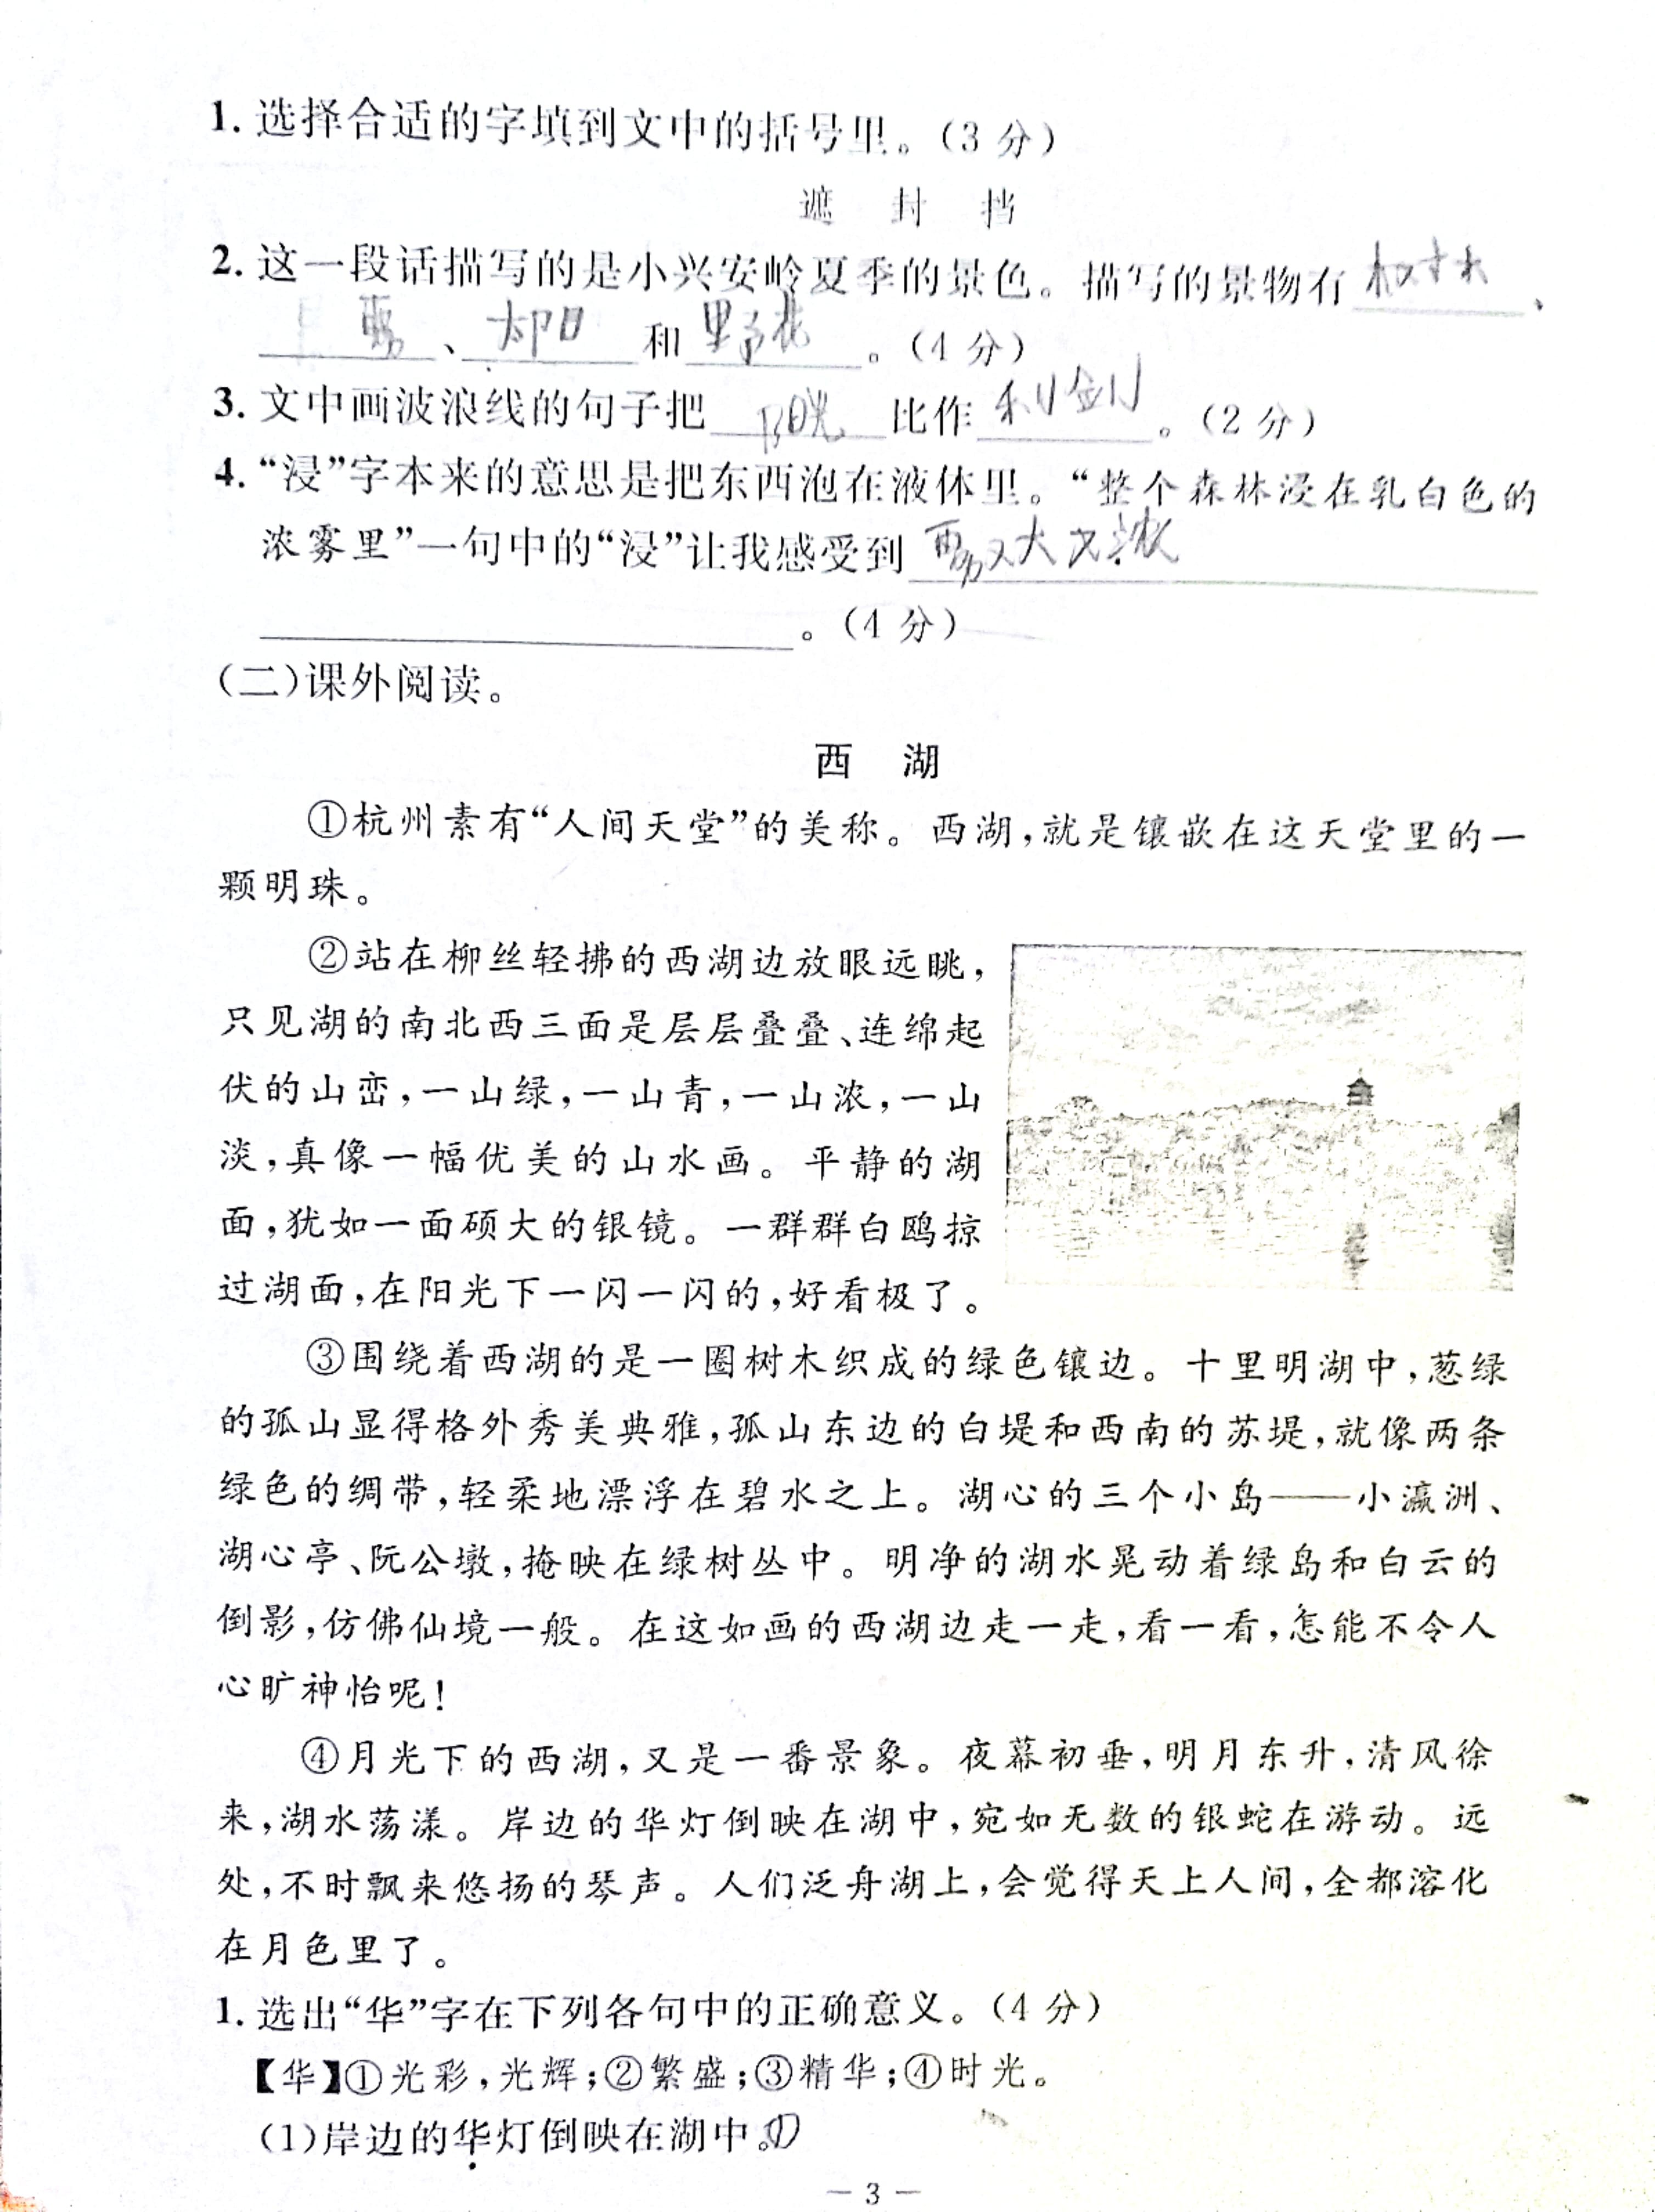 1. 选择合适的字填到文中的括号里。(3 分)
遮 封 挡
2. 这一段话描写的是小兴安岭夏季的景色。描写的景物有 树木 、
雾 、 太阳 和 野花 。(4 分)
3. 文中画波浪线的句子把 阳光 比作 利剑 。(2 分)
4. “浸”字本来的意思是把东西泡在液体里。“整个森林浸在乳白色的
浓雾里”一句中的“浸”让我感受到 雾又大又浓
。(4 分)
(二)课外阅读。
西 湖
①杭州素有“人间天堂”的美称。西湖,就是镶嵌在这天堂里的一
颗明珠。
②站在柳丝轻拂的西湖边放眼远眺,
只见湖的南北西三面是层层叠叠、连绵起
伏的山峦,一山绿,一山青,一山浓,一山
淡,真像一幅优美的山水画。平静的湖
面,犹如一面硕大的银镜。一群群白鸥掠
过湖面,在阳光下一闪一闪的,好看极了。
③围绕着西湖的是一圈树木织成的绿色镶边。十里明湖中,葱绿
的孤山显得格外秀美典雅,孤山东边的白堤和西南的苏堤,就像两条
绿色的绸带,轻柔地漂浮在碧水之上。湖心的三个小岛——小瀛洲、
湖心亭、阮公墩,掩映在绿树丛中。明净的湖水晃动着绿岛和白云的
倒影,仿佛仙境一般。在这如画的西湖边走一走,看一看,怎能不令人
心旷神怡呢!
④月光下的西湖,又是一番景象。夜幕初垂,明月东升,清风徐
来,湖水荡漾。岸边的华灯倒映在湖中,宛如无数的银蛇在游动。远
处,不时飘来悠扬的琴声。人们泛舟湖上,会觉得天上人间,全都溶化
在月色里了。
1. 选出“华”字在下列各句中的正确意义。(4 分)
【华】①光彩,光辉;②繁盛;③精华;④时光。
(1)岸边的华灯倒映在湖中。①
— 3 —